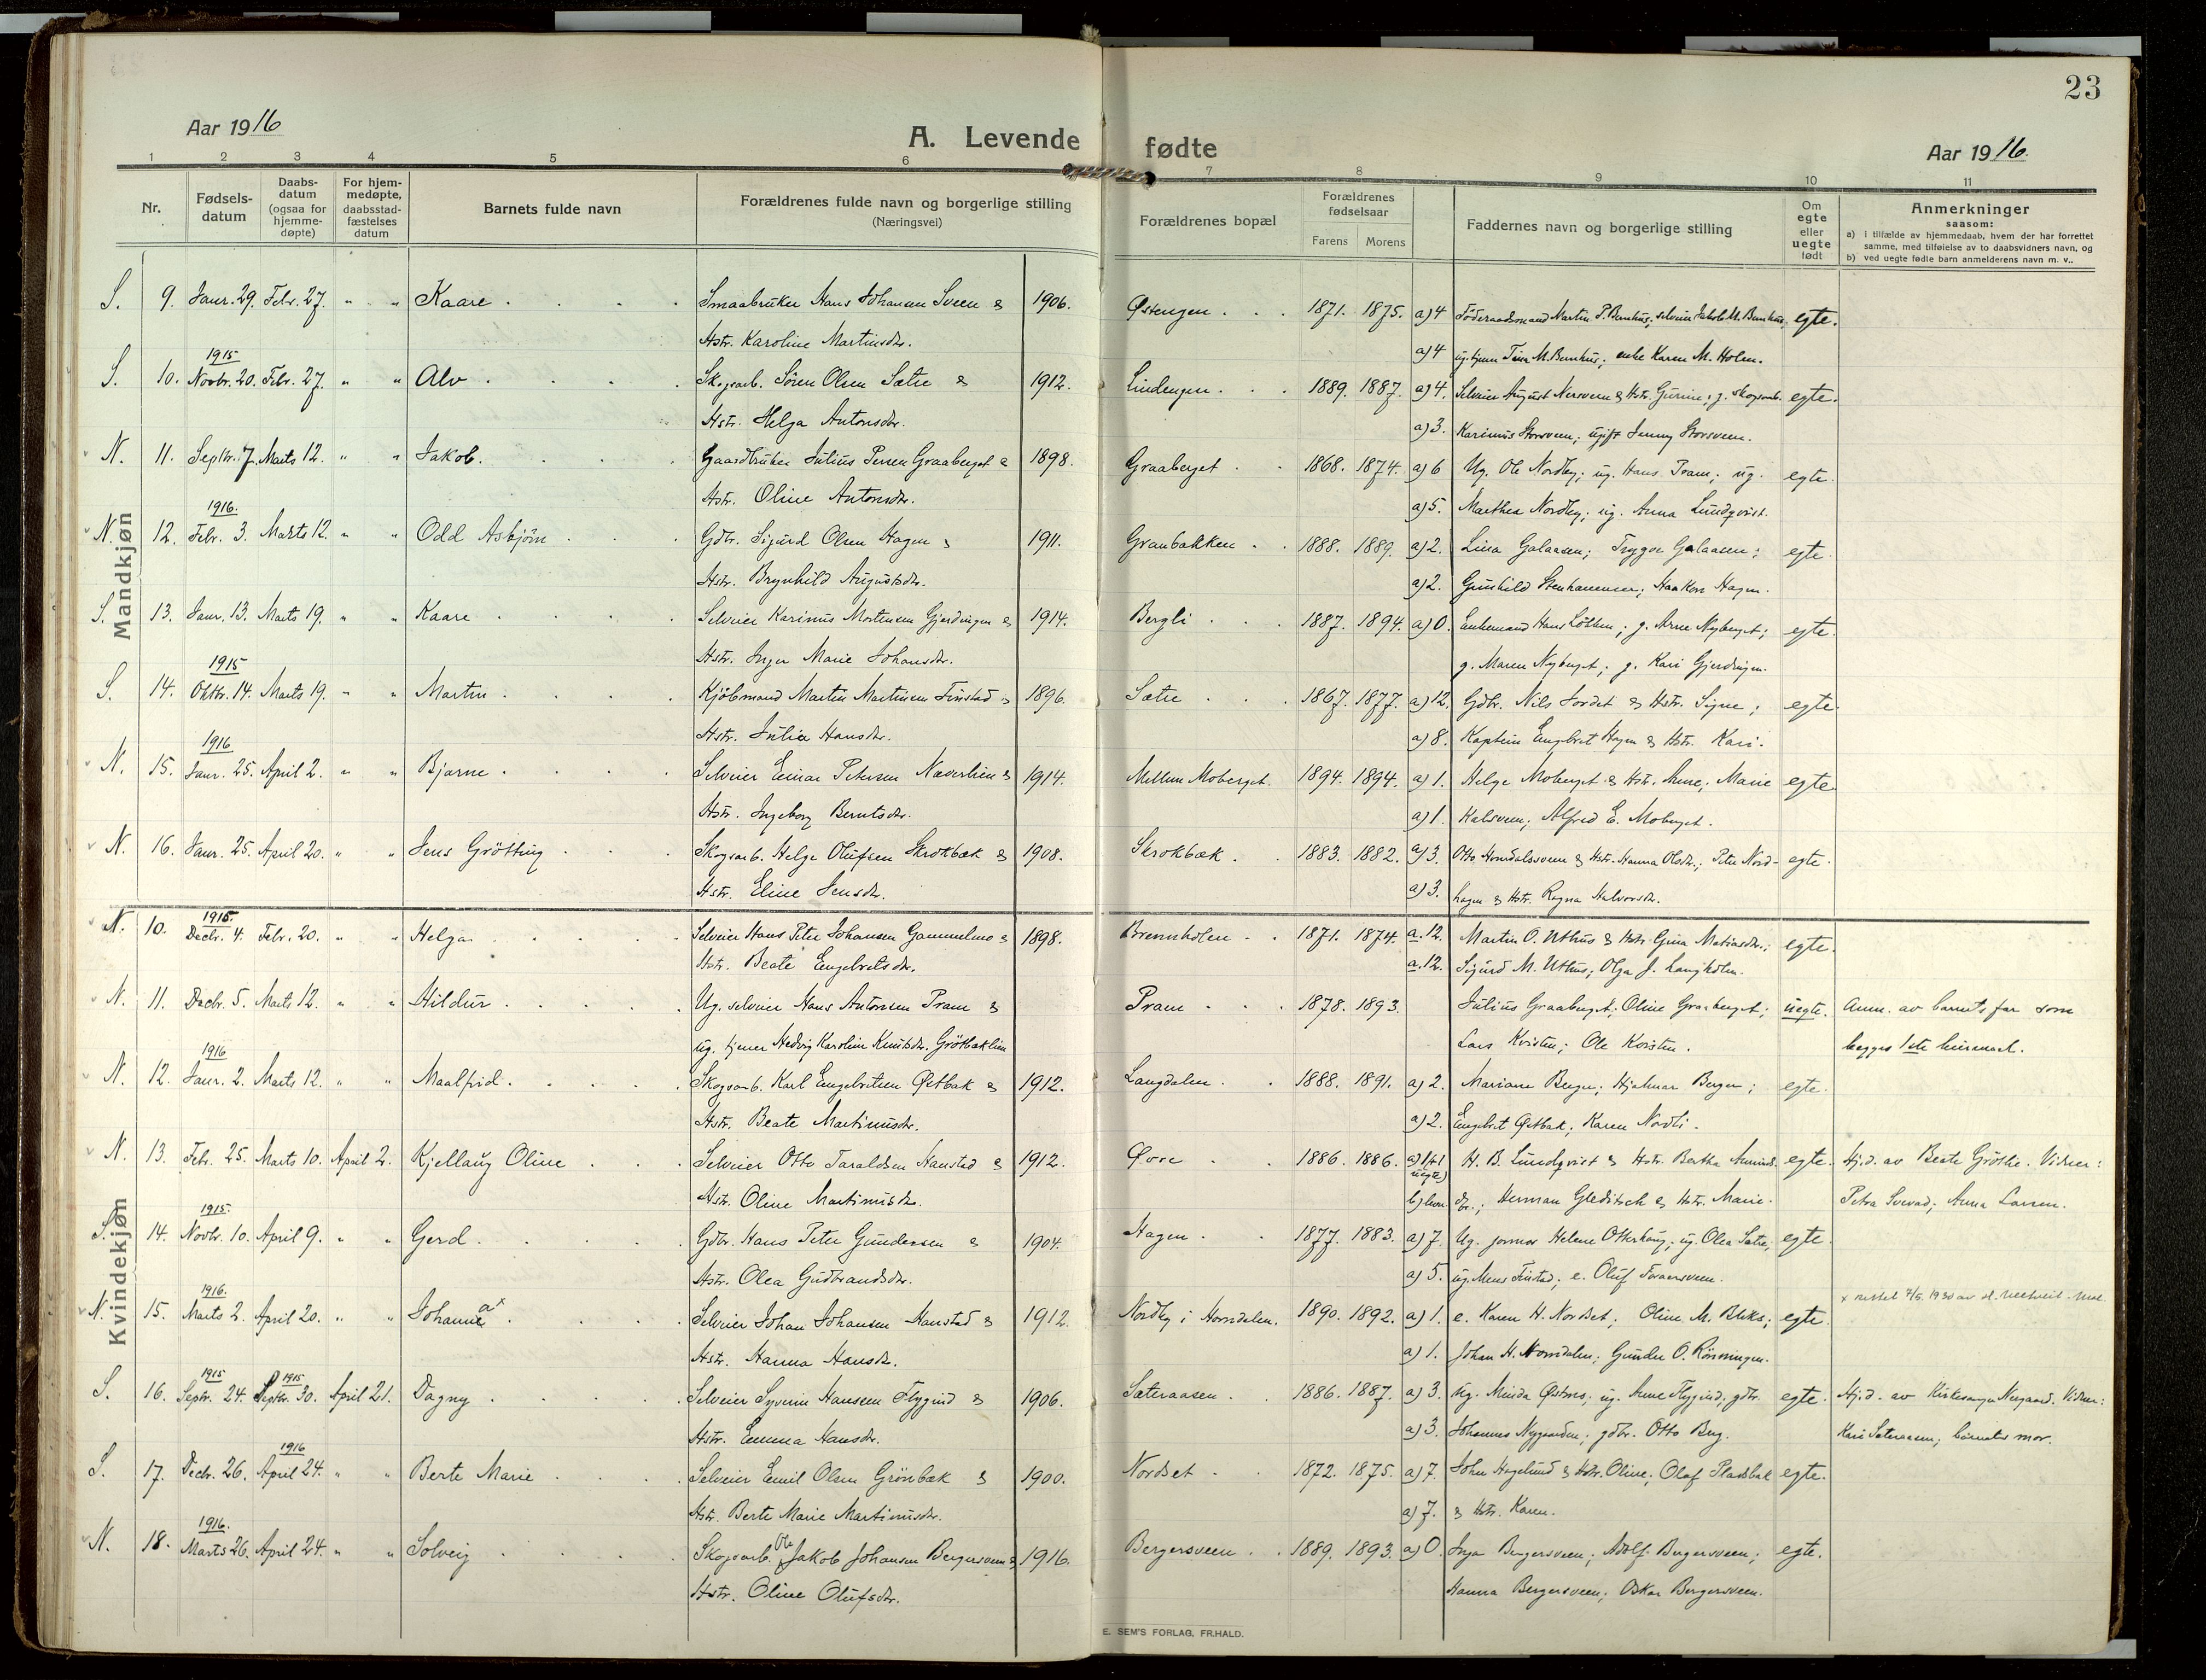 23
Aar 1916
A. Levende fødte
Aar 1916.
1 2 3 4 5 6 7 8 9 10 11
Nr.
Fødsels-
datum
Daabs-
datum
(ogsaa for
hjemme-
døpte)
For hjem-
medøpte,
daabsstad-
fæstelses
datum
Barnets fulde navn
Forældrenes fulde navn og borgerlige stilling
(Næringsvei)
Forældrenes bopæl
Forældrenes
fødselsaar
Farens Morens
Faddernes navn og borgerlige stilling
Om
egte
eller
uegte
født
Anmerkninger
saasom:
a) i tilfælde av hjemmedaab, hvem der har forrettet
samme, med tilføielse av to daabsvidners navn, og
b) ved uegte fødte barn anmelderens navn m. v..
Mandkjøn
S. 9. Janr. 29. Febr. 27. " " Kaare . Smaabruker Hans Johansen Sveen & 1906. Østengen . 1871. 1875. a) 4 Föderaadsmand Martin P. Bunhus; selveier Jakob M. Bunhus; egte.
Hstr. Karoline Martinsdtr. a) 4 ug. tjener Tina M. Bunhus; enke Karen M. Holen.
1915
S. 10. Novbr. 20. Febr. 27. " " Alv . Skogsarb. Sören Olsen Sætre & 1912. Lindengen . 1889. 1887. a) 4. Selveier August Nersveen & Hstr. Gurine; g. skogsarb. egte.
Hstr. Helga Antonsdtr. a) 3. Karinus Storsveen; ugift Jenny Storsveen.
N. 11. Septbr. 7. Marts 12. " " Jakob. Gaardbruker Julius Persen Graaberget & 1898. Graaberget . 1868. 1874. a) 6 Ug. Ole Nordby; ug. Hans Pram; ug. egte.
Hstr. Oline Antonsdtr. a) 5. Marthea Nordby; ug. Anna Lundqvist.
1916.
N. 12. Febr. 3. Marts 12. " " Odd Asbjörn . Gdbr. Sigurd Olsen Hagen & 1911. Granbakken . 1888. 1889. a) 2. Lina Galaasen; Trygve Galaasen; egte.
Hstr. Brynhild Augustsdtr. a) 2. Gunhild Stenhammer; Haakon Hagen.
S. 13. Janr. 13. Marts 19. " " Kaare . Selveier Karinus Mortensen Gjerdingen & 1914. Bergli . 1887. 1894. a) 0. Enkemand Hans Löthen; g. Arne Nyberget; egte.
Hstr. Inga Marie Johansdtr. g. Maren Nyberget; g. Kari Gjerdingen.
1915
S. 14. Oktbr. 14. Marts 19. " " Martin . Kjöbmand Martin Martinsen Finstad & 1896. Sætre . 1867. 1877. a) 12. Gdbr. Nils Jordet & Hstr. Signe; egte.
Hstr. Julia Hansdtr. a) 8. Kaptein Engebret Hagen & Hstr. Kari.
1916
N. 15. Janr. 25. April 2. " " Bjarne . Selveier Einar Petersen Næverlien & 1914. Mellem Moberget. 1894. 1894. a) 1. Helge Moberget & Hstr. Anne; Marie egte.
Hstr. Ingeborg Berntsdtr. a) 1. Kalsveen; Alfred E. Moberget.
N. 16. Janr. 25. April 20. " " Jens Grötting . Skogsarb. Helge Olufsen Skrokbæk & 1908. Skrokbæk . 1883. 1882. a) 3. Otto Horndalssveen & Hstr. Hanna Olsdtr.; Peter Nord- egte.
Hstr. Eline Jensdtr. a) 3. hagen & Hstr. Ragna Halvorsdtr.
Kvindekjøn
1915.
N. 10. Decbr. 4. Febr. 20. " " Helga . Selveier Hans Peter Johansen Gammelmo & 1898. Brennholen . 1871. 1874. a. 12. Martin O. Uthus & Hstr. Gina Matiasdtr.; egte.
Hstr. Beate Engebretsdtr. a. 12. Sigurd M. Uthus; Olga J. Langholm.
N. 11. Decbr. 5. Marts 12. " " Hildur . Ug. selveier Hans Antonsen Pram & Pram . 1878. 1893. Julius Graaberget; Oline Graaberget; uegte. Anm. av barnets far som
ug. tjener Hedvig Karoline Knutsdtr. Grötbæklien Lars Kvisten; Ole Kvisten. begges 1ste leiermaal.
1916
N. 12. Janr. 2. Marts 12. " " Maalfrid . Skogsarb. Karl Engebretsen Østbak & 1912. Langdalen . 1888. 1891. a) 2. Mariane Berger; Hjalmar Berger; egte.
Hstr. Beate Martinusdtr. a) 2. Engebret Østbak; Karen Nordli.
N. 13. Febr. 25. Marts 10. April 2. Kjellaug Oline . Selveier Otto Taraldsen Hanstad & 1912. Øvre . 1886. 1886. a) 1+1 uegte) H. B. Lundqvist & Hstr. Bertha Amunds- egte. Hj.d. av Beate Gröthe. Vidner:
Hstr. Oline Martinusdtr. dtr.; Herman Gleditsch & Hstr. Marie. Petra Svevad; Anna Larsen.
1915.
S. 14. Novbr. 10. April 9. " " Gerd . Gdbr. Hans Peter Gundersen & 1904. Hagen . 1877. 1883. a) 7. Ug. jormor Helene Otterhaug; ug. Olea Sætre; egte.
Hstr. Olea Gudbrandsdtr. a) 5. ug. Mens Finstad; e. Oluf Foraersveen.
1916.
N. 15. Marts 2. April 20. " " Johanne a x . Selveier Johan Johansen Hanstad & 1912. Nordby i Horndalen. 1890. 1892. a) 1. e. Karen H. Nordset; Oline M. Bliks; egte. x rettet 7/5 1930 av
Hstr. Hanna Hansdtr. a) 1. Johan H. Horndalen; Gunder O. Rönningen.
1915 1915
S. 16. Septr. 24. Septbr. 30. April 21. Dagny . Selveier Syverin Hansen Flygind & 1906. Sæteraasen . 1886. 1887. a) 3. Ug. Minda Østmo; ug. Anne Flygind; gdbr. egte. Hj.d. av Kirkesanger Neegaard. Vidner:
Hstr. Emma Hansdtr. a) 3. Johannes Nygaarden; gdbr. Otto Berg. Kari Sæteraasen; barnets mor.
1916
S. 17. Decbr. 26. April 24. " " Berte Marie . Selveier Emil Olsen Grönbæk & 1900. Nordset . 1872. 1875. a) 7. John Hagelund & Hstr. Oline; Olaf Pladsbak egte.
Hstr. Berte Marie Martinusdtr. a) 7. & Hstr. Karen.
1916.
N. 18. Marts 26. April 24. " " Solveig . Skogsarb. Ole Jakob Johansen Bergersveen & 1916. Bergersveen . 1889. 1893. a) 0. Inga Bergersveen; Adolf Bergersveen; egte.
Hstr. Oline Olufsdtr. Hanna Bergersveen; Oskar Bergersveen.
E. SEM'S FORLAG, FR.HALD.